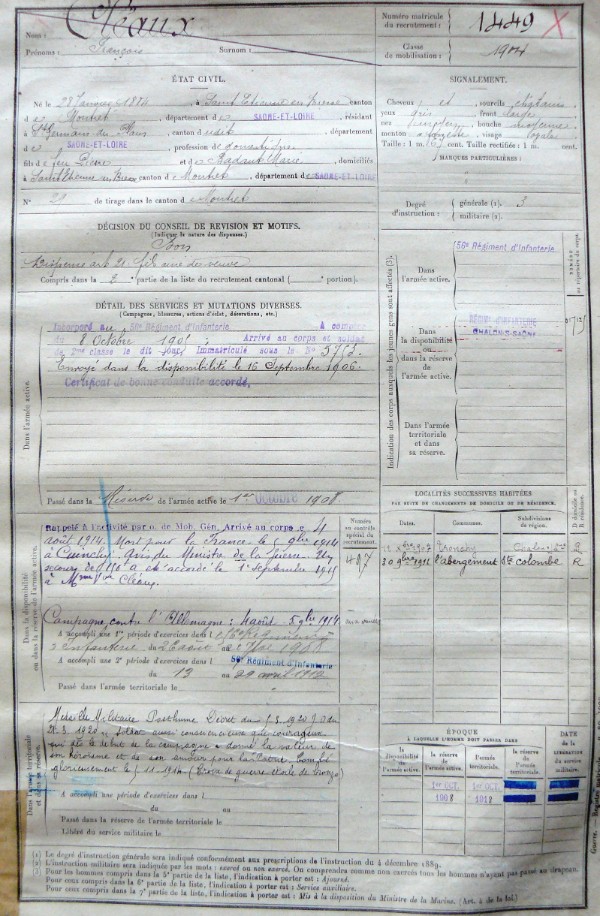 Cléaux
Nom :
Prénoms : François Surnom :
Numéro matricule
du recrutement : 1449
Classe
de mobilisation : 1904
ÉTAT CIVIL.
Né le 28 Janvier 1884, à Saint Etienne en Bresse canton
de Montret, département de SAONE-ET-LOIRE, résidant
à St Germain du canton de dit, département
de SAONE-ET-LOIRE, profession de domestique
fils de feu Pierre et de Marie, domiciliés
à Saint Etienne en Bresse canton de Montret, département de SAONE-ET-LOIRE
N° 21 de tirage dans le canton de Montret
SIGNALEMENT.
Cheveux et sourcils châtains
yeux gris front
nez bouche moyenne
menton visage ovale
Taille : 1 m. cent. Taille rectifiée : 1 m. cent.
MARQUES PARTICULIÈRES :
Degré d'instruction : générale (1). 3
militaire (2).
DÉCISION DU CONSEIL DE REVISION ET MOTIFS.
(Indiquer la nature des dispenses.)
Bon
Dispensé art 21 fils aîné de veuve
Compris dans la 2e partie de la liste du recrutement cantonal ( portion).
DÉTAIL DES SERVICES ET MUTATIONS DIVERSES.
(Campagnes, blessures, actions d'éclat, décorations, etc.)
Dans l'armée active.
Incorporé au 56e Régiment d'Infanterie à compter
du 8 Octobre 1905; Arrivé au corps et soldat
de 2me classe le dit jour. Immatriculé sous le N°
Envoyé dans la disponibilité le 16 Septembre 1906.
Certificat de bonne conduite accordé.
Passé dans la Réserve de l'armée active le 1er OCTOBRE 1908
Indication des corps auxquels les jeunes gens sont affectés (3).
Dans l'armée active. 56e Régiment d'Infanterie
Dans la disponibilité ou dans la réserve de l'armée active. RÉGT D'INFANTERIE
CHALON-S-SAONE
Dans l'armée territoriale et dans sa réserve.
NUMÉRO
au répertoire du corps
Dans la disponibilité ou dans la réserve de l'armée active.
Rappelé à l'activité par o. de Mob. Gén. Arrivé au corps le 4
août 1914. Mort pour la France le 5 9bre 1914
à Cuinchy. Avis du Ministre de la Guerre. Un
secours de 150f a été accordé le 1er Septembre 1915
à Mme Vve Cléaux
Numéro au contrôle spécial du recrutement.
497
Campagne contre l'Allemagne : 4 août 5 9bre 1914
A accompli une 1re période d'exercices dans l
d'Infanterie du 1908
A accompli une 2e période d'exercices dans l 56e Régiment d'Infanterie
du 13 au 29 avril 1912
Passé dans l'armée territoriale le
LOCALITÉS SUCCESSIVES HABITÉES
PAR SUITE DE CHANGEMENTS DE DOMICILE OU DE RÉSIDENCE.
Dates. Communes. Subdivisions de région. D domicile ou R résidence.
1907 Tronchy Chalon R
30 9bre 1911 l'abergement Ste colombe R
Dans l'armée territoriale et dans sa réserve.
Médaille Militaire Posthume Décret du 1920 J.O. du
1920 "Soldat aussi consciencieux que courageux
a dès le début de la campagne donné la valeur de
son héroïsme et de son amour pour la Patrie. Tombé
glorieusement le 5.11.1914 (Croix de guerre étoile de bronze)
A accompli une période d'exercices dans l
du au
Passé dans la réserve de l'armée territoriale le
Libéré du service militaire le
ÉPOQUE
À LAQUELLE L'HOMME DOIT PASSER DANS
DATE de la LIBÉRATION du service militaire.
la disponibilité de l'armée active. la réserve de l'armée active. l'armée territoriale. la réserve de l'armée territoriale.
1er OCT. 1er OCT.
1908 1918
(1) Le degré d'instruction générale sera indiqué conformément aux prescriptions de l'instruction du 4 décembre 1889.
(2) L'instruction militaire sera indiquée par les mots : exercé ou non exercé. On comprendra comme non exercés tous les hommes n'ayant pas passé au drapeau.
(3) Pour les hommes compris dans la 5e partie de la liste, l'indication à porter est : Ajourné.
Pour ceux compris dans la 6e partie de la liste, l'indication à porter est : Service auxiliaire.
Pour ceux compris dans la 7e partie de la liste, l'indication à porter est : Mis à la disposition du Ministre de la Marine. (Art. 4 de la loi.)